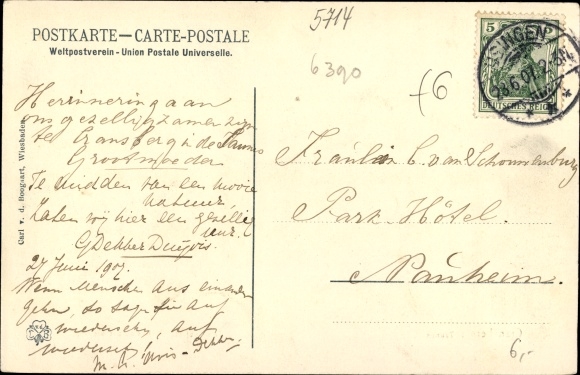 POSTKARTE — CARTE-POSTALE
Weltpostverein - Union Postale Universelle.
5714
6390
f6
5
DEUTSCHES REICH
Herinnering aan
ons gezellig zamenzijn
te Cransberg i. de Taunus
Grootmoeder
Te midden van een mooie
natuur,
zaten wij hier een gezellig
uur.
G Dekker Duyvis.
27 Juni 1907.
Wenn Menschen aus einander
gehn, so sagen sie auf
wiedersehn, auf
wiedersehn!
Carl v. d. Boogaart, Wiesbaden
Fräulein C. van Schouwenburg
Park-Hôtel.
Nauheim.
6,-